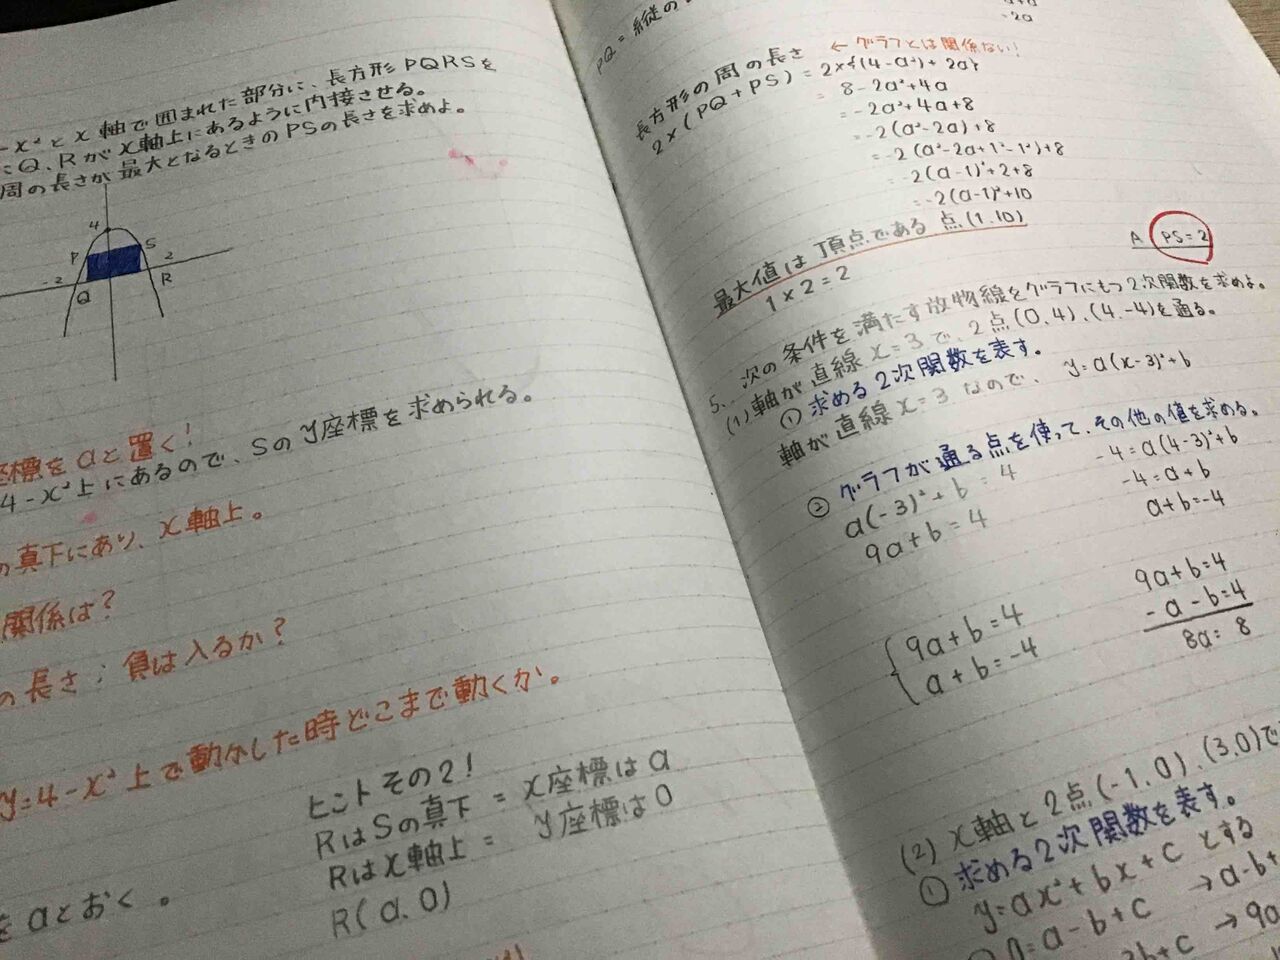 -x²とx軸で囲まれた部分に、長方形PQRSを
にQ、Rがx軸上にあるように内接させる。
周の長さが最大となるときのPSの長さを求めよ。
4
P
S
-2
2
Q
R
座標をaと置く!
4-x²上にあるので、Sのy座標を求められる。
の真下にあり、x軸上。
関係は?
の長さ;負は入るか?
y=4-x²上で動かした時どこまで動くか。
ヒントその2!
RはSの真下 = x座標はa
Rはx軸上 = y座標は0
R(a,0)
をaとおく。
-2a
PQ=縦の
長方形の周の長さ ←グラフとは関係ない!
2×(PQ+PS)=2×{(4-a²)+2a}
= 8-2a²+4a
= -2a²+4a+8
= -2(a²-2a)+8
= -2(a²-2a+1²-1²)+8
= -2(a-1)²+2+8
= -2(a-1)²+10
最大値は頂点である点(1.10)
1×2=2
A PS=2
5. 次の条件を満たす放物線をグラフにもつ2次関数を求めよ。
(1)軸が直線x=3で、2点(0,4)、(4,-4)を通る。
①求める2次関数を表す。
軸が直線x=3なので、 y=a(x-3)²+b
②グラフが通る点を使って、その他の値を求める。
a(-3)²+b=4
9a+b=4
-4=a(4-3)²+b
-4=a+b
a+b=-4
{9a+b=4
a+b=-4
9a+b=4
-a-b=4
8a=8
(2)x軸と2点(-1,0)、(3,0)で
①求める2次関数を表す。
y=ax²+bx+cとする
0=a-b+c →a-b+
3b+c →9a